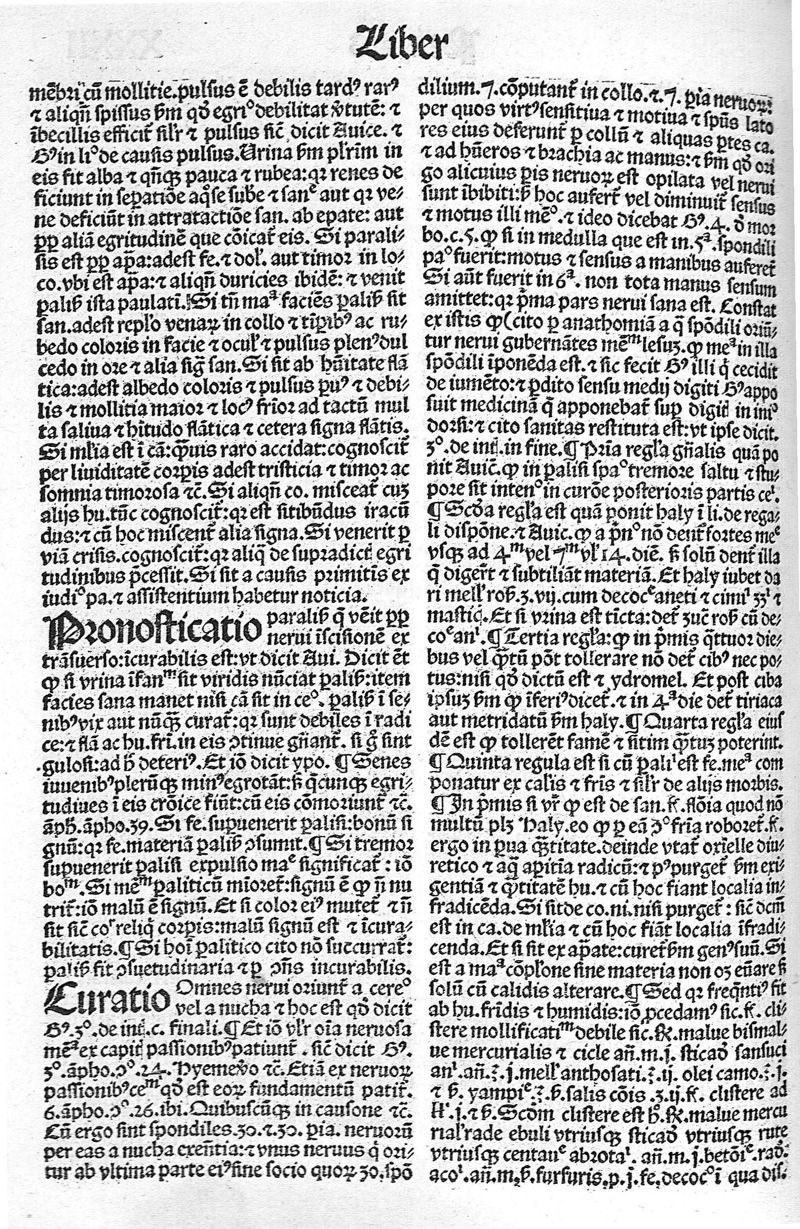 Liber
mēbri cū mollitie. pulsus ē debilis tardꝰ rarꝰ
⁊ aliqñ spissus ẜm qđ egriꝰ debilitat v̄tutē: ⁊
ībecillis efficit̄ silr̄ ⁊ pulsus sic̄ dicit Auice. ⁊
Gꝰ in li° de causis pulsus. Urina ẜm plr̄im in
eis fit alba ⁊ qñqꝫ pauca ⁊ rubea: qr renes de
ficiunt in sep̱atiōe aq̄se sube ⁊ sanᵉ aut qr ve-
ne deficiūt in attratactiōe san. ab epate: aut
p̱p̱ aliā egritudinē que cōicat̄ eis. Si parali-
sis est p̱p̱ ap̄a: adest fe. ⁊ dol'. aut timor in lo-
co. vbi est ap̄a: ⁊ aliqñ duricies ibidē: ⁊ venit
palisꝭ ista paulati. Si tñ maᵃ faciēs palisꝭ sit
san. adest repl'o venaꝝ in collo ⁊ tīp̱ibꝰ ac ru-
bedo coloris in facie ⁊ ocul' ⁊ pulsus plenꝰ dul
cedo in ore ⁊ alia sig̃ san. Si sit ab hūitate flā
tica: adest albedo coloris ⁊ pulsus p̱uꝰ ⁊ debi-
lis ⁊ mollitia maior ⁊ locꝰ fr̄ior ad tactū mul
ta saliua ⁊ hītudo flātica ⁊ cetera signa flātis.
Si mł̄ia est ī cā: q̄uis raro accidat: cognoscit̄
per liuiditatē corp̱is adest tristicia ⁊ timor ac
somnia timorosa ⁊c̄. Si aliqñ co. misceat̄ cuꝫ
alijs hu. tūc cognoscit̄: qr est sitibūdus iracū
dus: ⁊ cū hoc miscent̄ alia signa. Si venerit p̱
viā crisis. cognoscit̄: qr aliq̄ de supradic̄ egri
tudinibus p̄cessit. Si sit a causis primitīs ex
iudi° pa. ⁊ assistentium habetur noticia.
Pronosticatio paralisꝭ q̄ vēit p̱p̱
nerui īscisionē ex
trāsuerso: īcurabilis est: vt dicit Aui. Dicit ēt
ꝙ si vrina īfanᵐ sit viridis nūciat palisꝭ: item
facies sana manet nisi cā sit in ceᵒ. palisꝭ ī se-
nibꝰ vix aut nūqꝫ curat̄: qr sunt debiles ī radi
ce: ⁊ flā ac hu. fri. in eis ↄtinue gñant̄. si g̊ sint
gulosi: ad ħ deteriꝰ. Et iō dicit ypo. ¶ Senes
iuuenibꝰ plerūqꝫ minꝰ egrotāt: ẜ q̄cunqꝫ egri-
tudines ī eis crōice fiūt: cū eis cōmoriunt̄ ⁊c̄.
āpħ. āpho. 39. Si fe. supuenerit palisi: bonū si
gnū: qr fe. materiā palisꝭ ↄsumit. ¶ Si tremor
supuenerit palisi expulsio maᵉ significat̄: iō
boᵐ. Si mēᵐ paliticū mīoret̄: signū ē ꝙ ñ nu
trit̄: iō malū ē signū. Et si color eiꝰ mutet̄ ⁊ ñ
sit sic̄ coʳ reliq̄ corp̱is: malū signū est ⁊ īcura-
bilitatis. ¶ Si hoī palitico cito nō succurrat̄:
palisꝭ fit ↄsuetudinaria ⁊ p̱ ↄñs incurabilis.
Curatio Omnes nerui oriunt̄ a cereᵒ
vel a nucha ⁊ hoc est qđ dicit
Gꝰ. 3°. de int̄. c. finali. ¶ Et iō vlr̄ oīa neruosa
mēᵃ ex capiti passionibꝰ patiunt̄. sic̄ dicit Gꝰ.
5°. āpho. ↄ°. 24. Hyemevo ⁊c̄. Etiā ex neruoꝝ
passionibꝰ ceᵐ qđ est eoꝝ fundamentū patit̄.
6. āpho. ↄ°. 26. ibi. Quibuscūqꝫ in causone ⁊c̄.
Cū ergo sint spondiles. 30. ⁊ 30. p̱ia. neruorū
per eas a nucha exeñtia: ⁊ vnus neruus q̄ ori-
tur ab vltima parte eiꝰ sine socio quoꝝ 30. spō
dilium. 7. cōputant̄ in collo. ⁊. 7. p̱ia neruoꝝ:
per quos virtꝰ sensitiua ⁊ motiua ⁊ sp̄us lato
res eius deferunt̄ p̱ collū ⁊ aliquas p̱tes ca.
⁊ ad hūeros ⁊ brachia ac manus: ⁊ ẜm qđ ori
go alicuius p̱is neruoꝝ est opilata vel nerui
sunt ībibiti: ẜ hoc aufert̄ vel diminuit̄ sensus
⁊ motus illi mēᵒ. ⁊ ideo dicebat Gꝰ. 4. đ mor
bo. c. 5. ꝙ si in medulla que est in. 5ᵃ. spondili
pa° fuerit: motus ⁊ sensus a manibus auferet̄
Si aūt fuerit in 6ᵃ. non tota manus sensum
amittet: qr p̄ma pars nerui sana est. Constat
ex istis ꝙ (cito p̱ anathomiā a q̄ spōdili oriū-
tur nerui gubernātes mēᵐ lesuꝫ. ꝙ meᵃ in illa
spōdili īponēda est. ⁊ sic fecit Gꝰ illi q̄ cecidit
de iumēto: ⁊ p̱dito sensu medij digiti Gꝰ appo
suit medicinā q̄ apponebat̄ sup̱ digitū in iniᵒ
dorsi: ⁊ cito sanitas restituta est: vt ipse dicit.
3°. de int̄. in fine. ¶ Pr̄ia regl'a gñalis quā po
nit Auic̄. ꝙ in palisi spaᵒ tremore saltu ⁊ stu-
pore sit intenᵒ in curōe posterioris partis ceʳ.
¶ Scđa regl'a est quā ponit haly ī li. de rega-
li dispōne. ⁊ Auic. ꝙ a p̄nᵒ nō dent̄ fortes meᵉ
vsqꝫ ad 4ᵐ vel 7ᵐ vl' 14. diē. ẜ solū dent̄ illa
q̄ digert̄ ⁊ subtiliāt materiā. Et haly iubet da
ri mell' roẜ. ʒ. vij. cum decocᵉ aneti ⁊ cimiʳ ʒʒⁱ ⁊
mastic̄. Et si vrina est tīcta: det̄ ʒuc̄ roẜ cū de-
coᵉ aniʳ. ¶ Tertia regl'a: ꝙ in p̄mis q̄ttuor die-
bus vel q̄tū pōt tollerare nō det̄ cibꝰ nec po-
tus: nisi qđ dictū est ⁊ ydromel. Et post ciba
ipsuꝫ ẜm ꝙ īferiꝰ dicet̄. ⁊ in 4ᵃ die det̄ tiriaca
aut metridatū ẜm haly. ¶ Quarta regl'a eius
dē est ꝙ tolleret̄ famē ⁊ sitim q̄tuꝫ poterint.
¶ Quinta regula est si cū paliʳ est fe. meᵃ com
ponatur ex calis ⁊ fr̄is ⁊ silr̄ de alijs morbis.
¶ In p̄mis si vr̄ ꝙ est de san. fl̄. flōia quod nō
multū plꝫ Haly. eo ꝙ p̱ eā ↄ° fr̄ia roboret̄. fl̄.
ergo in p̱ua q̄titate. deinde vtat̄ oxīelle diu-
retico ⁊ aq̄ ap̱itīa radicū: ⁊ pꝰ purget̄ ẜm exi-
gentiā ⁊ q̄titatē hu. ⁊ cū hoc fiant localia in-
fradicēda. Si sit de co. ni. nisi purget̄: sic̄ dcm̄
est in ca. de mł̄ia ⁊ cū hoc fiāt localia īfradi-
cenda. Et si sit ex ap̱ate: curet̄ ẜm genꝰ suū. Si
est a maᵃ cōpl'one sine materia non oꝫ eūare ẜ
solū cū calidis alterare. ¶ Sed qr freq̄nti° fit
ab hu. fr̄idis ⁊ humidis: iō p̱cedamꝰ sic. fl̄. cli-
stere mollificatiᵐ debile sic. ℞. malue bismal-
ue mercurialis ⁊ cicle añ. m. j. sticađ sansuci
anⁱ. añ. ʒ. j. mell' anthosati. ʒ. ij. olei camo. ʒ. j.
⁊ ẜ. yampiᵉ. ʒ. ẜ. salis cōis. ʒ. ij. fl̄. clistere ad
ll̄. j. ⁊ ẜ. Scđm clistere est ħ. ℞. malue mercu
rial' rađe ebuli vtriusqꝫ sticađ vtriusqꝫ rute
vtriusqꝫ centaueᵉ abrotaʳ. añ. m. j. betōīᵉ. rađ.
acoʳ. añ. m. ẜ. furfuris. p. j. fe. decocᵒ ī qua dis-